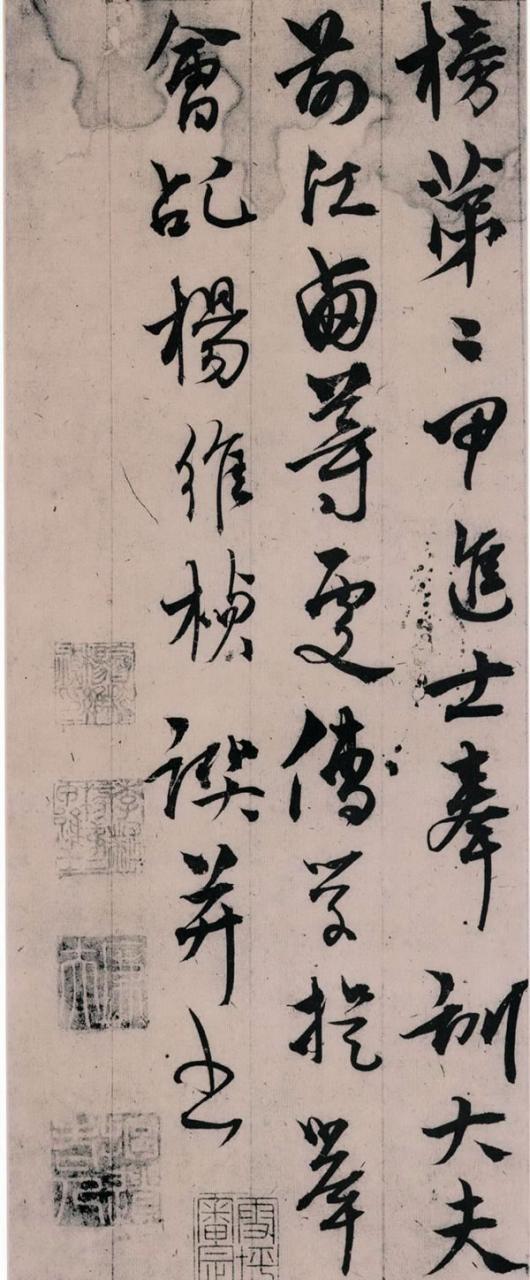 榜第二甲進士奉訓大夫
前江西等處儒學提舉
會稽楊維楨譔并書